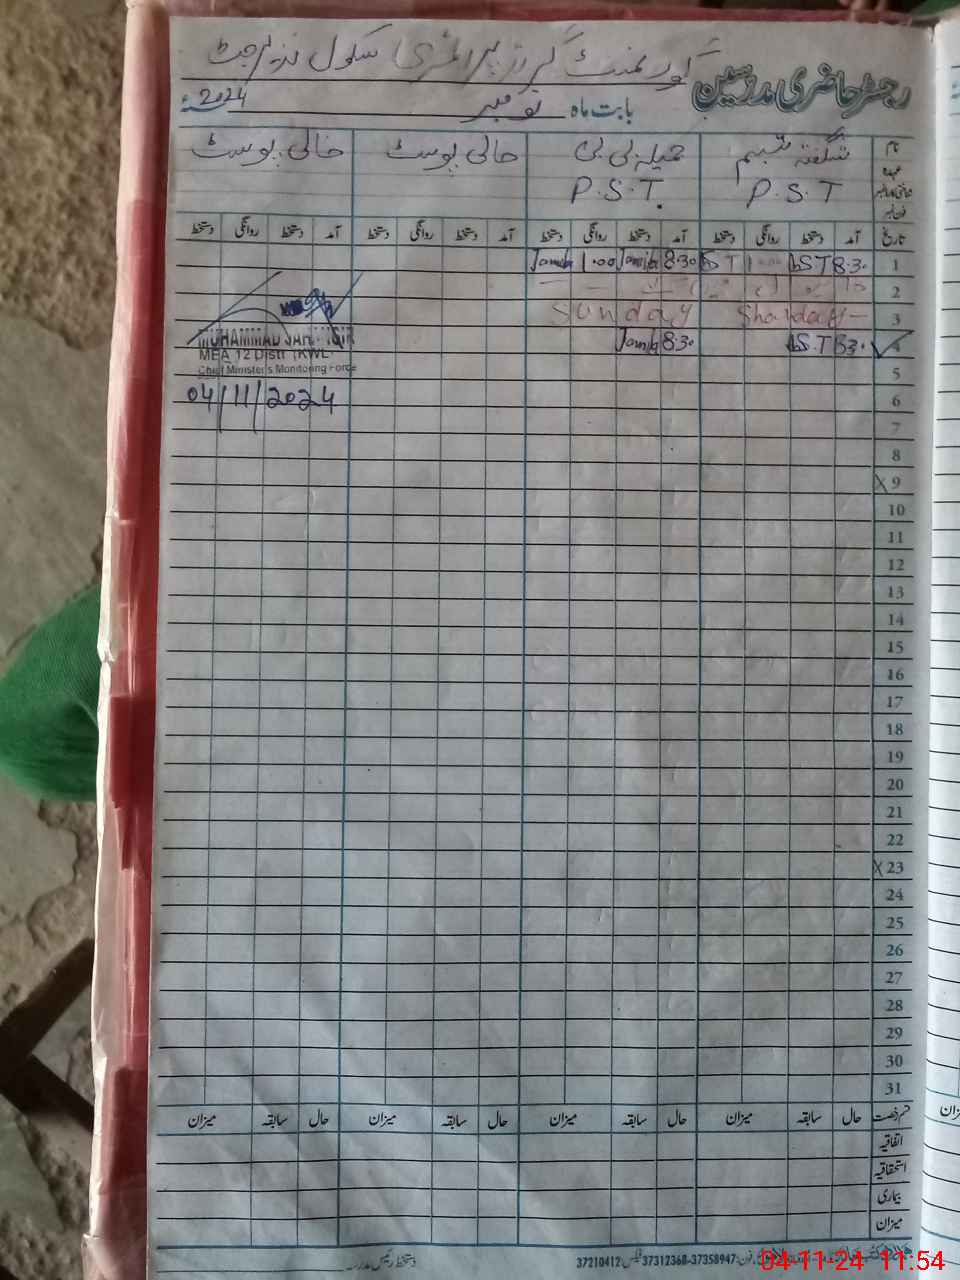 گورنمنٹ گرلز پرائمری سکول نذیر جٹ
رجسٹر حاضری مدرسین
بابت ماہ نومبر 2024ء
نام شگفتہ شبنم جمیلہ بی بی خالی پوسٹ خالی پوسٹ
عہدہ P.S.T P.S.T.
فون نمبر
تاریخ آمد دستخط روانگی دستخط آمد دستخط روانگی دستخط آمد دستخط روانگی دستخط آمد دستخط روانگی دستخط
1 8.30 S.T 1.00 S.T 8.30 Jamila 1.00 Jamila
2
3 Sunday
4 8.30 S.T 8.30 Jamila
MUHAMMAD
MEA 12 Distt (KWL
Chief Minister's Monitoring Force
5
6
04/11/2024
7
8
X 9
10
11
12
13
14
15
16
17
18
19
20
21
22
X 23
24
25
26
27
28
29
30
31
قسم رخصت حال سابقہ میزان حال سابقہ میزان حال سابقہ میزان حال سابقہ میزان
اتفاقیہ
استحقاقیہ
بیماری
میزان
دستخط رئیس مدرسہ
فون: 37358947-37312368 فیکس: 37210412
04-11-24 11.54